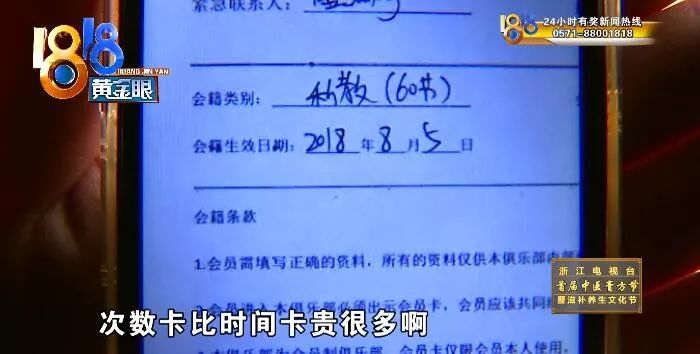 紧急联系人:
24小时有奖新闻热线
0571-88001818
1818
HUANG JIN YAN
黄金眼
会籍类别: 私教(60节)
会籍生效日期: 2018 年 8 月 5 日
会籍条款
1.会员需填写正确的资料,所有的资料仅供本俱乐部内部
2.会员进入本俱乐部必须出示会员卡,会员应该共同
为会员制俱乐部,会员卡仅限会员本人使用,
浙江电视台
首届中医膏方节
暨滋补养生文化节
次数卡比时间卡贵很多啊